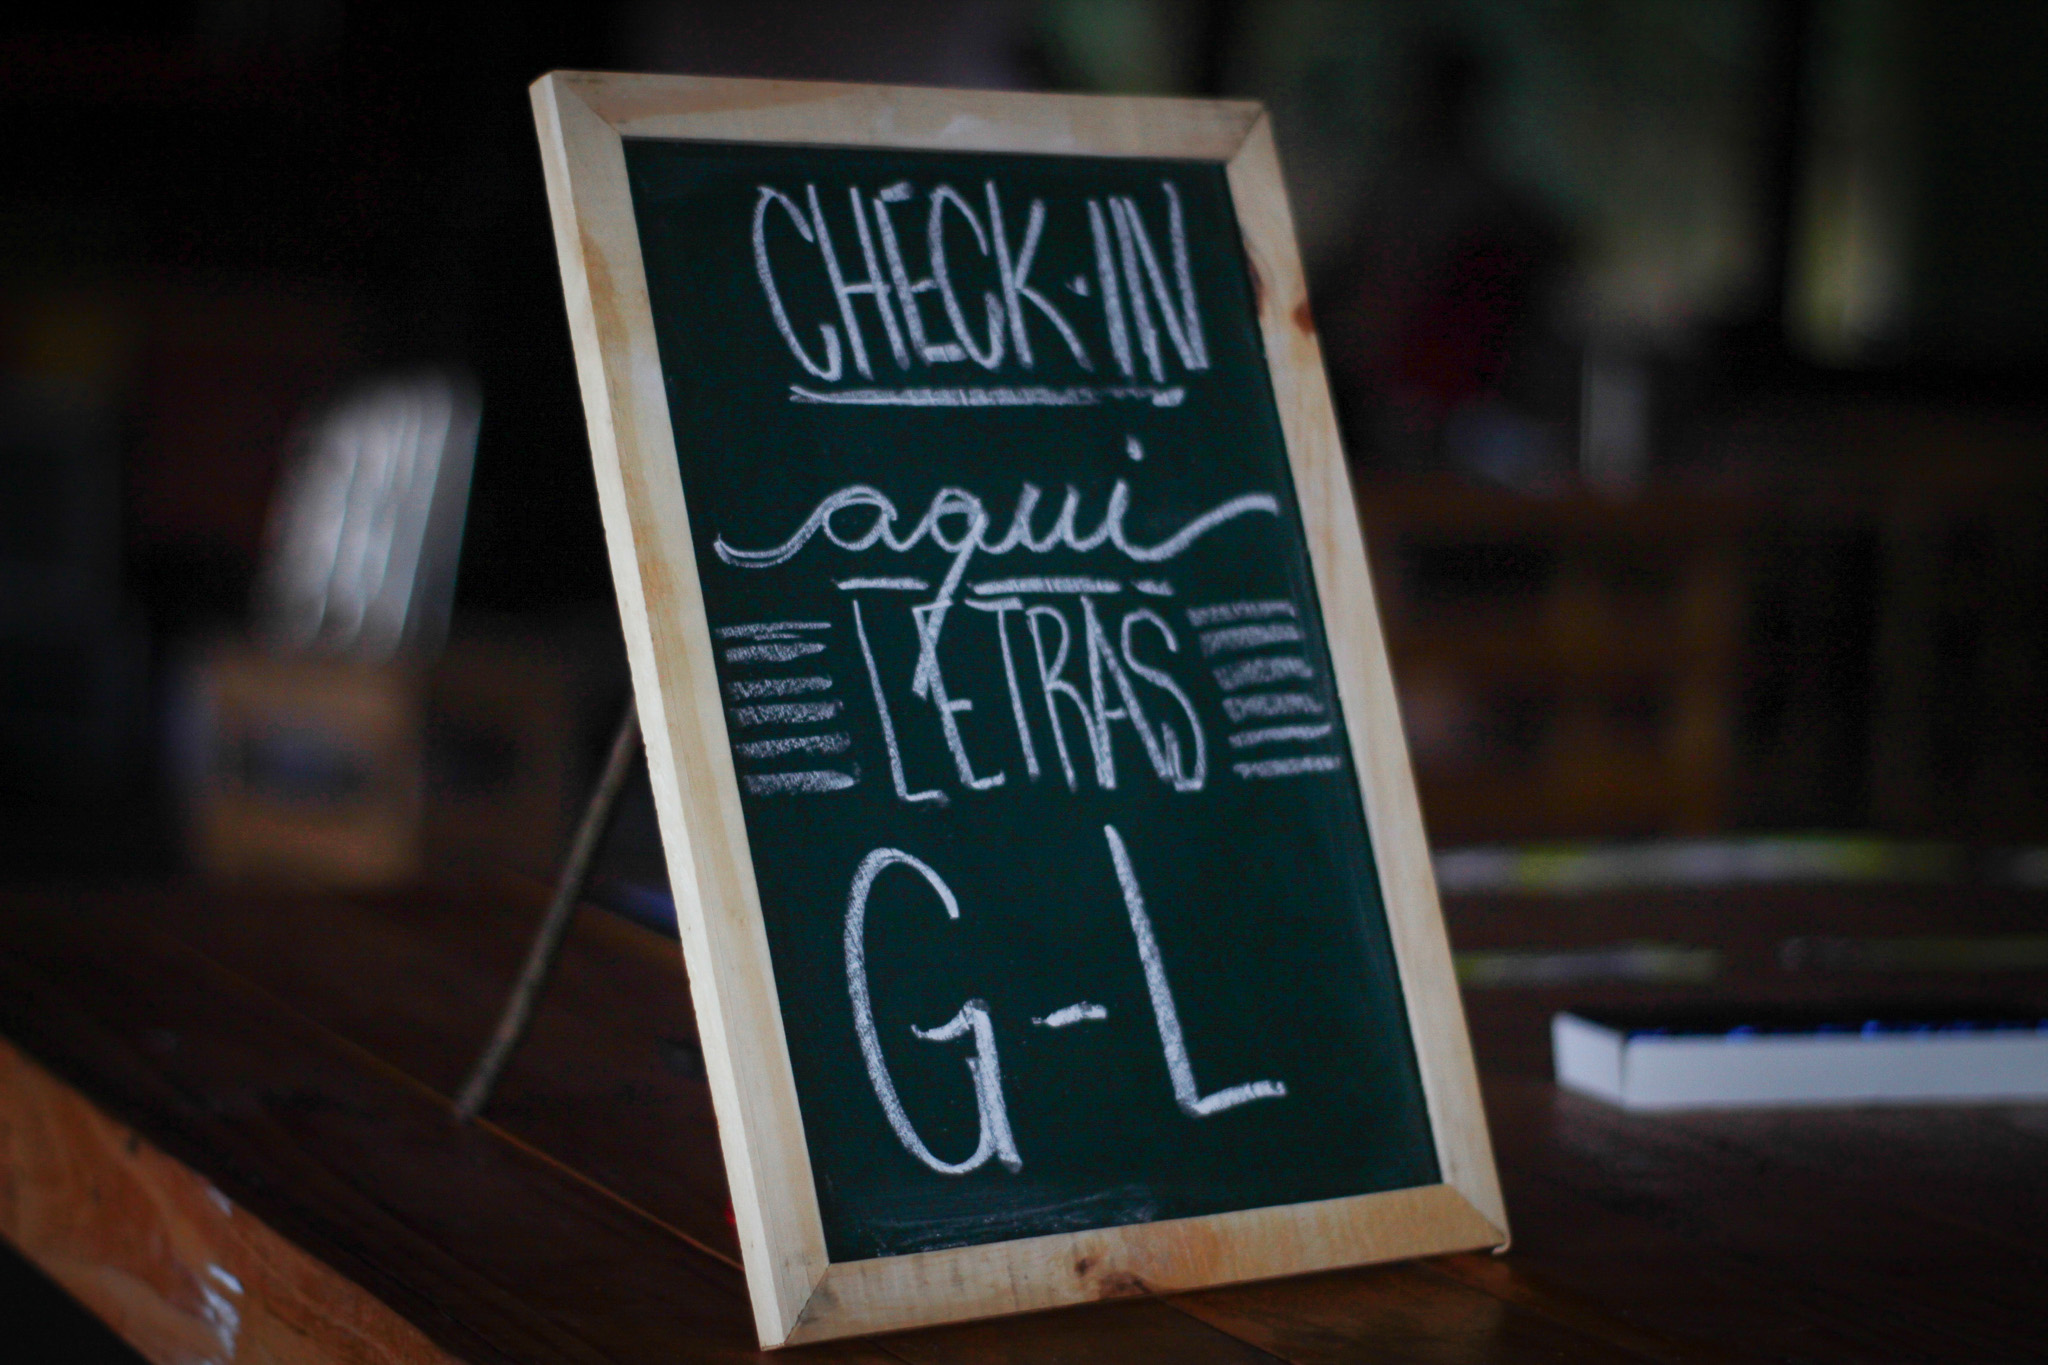 CHECK-IN
aqui
LETRAS
G-L